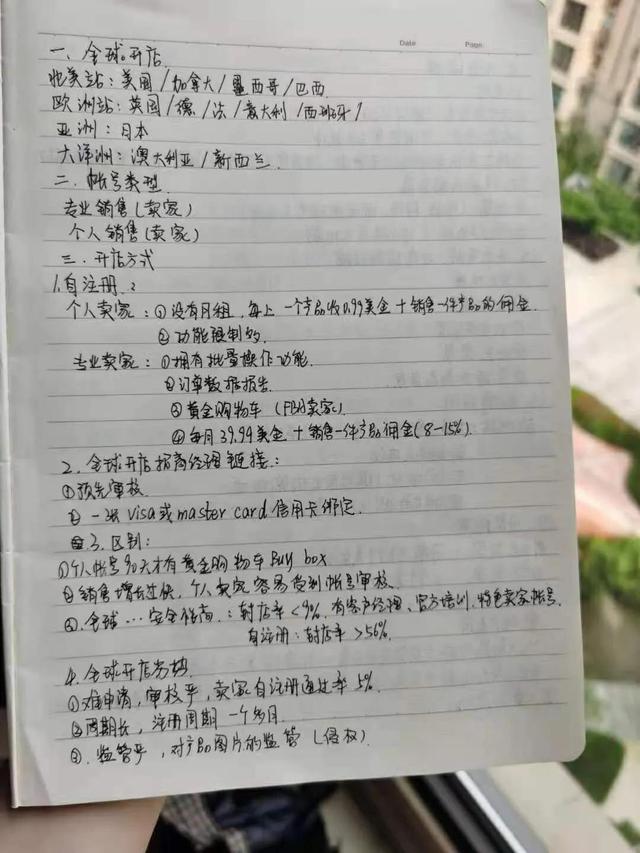 Date Page
一、全球开店
北美站：美国/加拿大/墨西哥/巴西
欧洲站：英国/德/法/意大利/西班牙/
亚洲：日本
大洋洲：澳大利亚/新西兰
二、帐号类型
专业销售(卖家)
个人销售(卖家)
三、开店方式
1.自注册：
个人卖家：①没有月租，每上一个产品收0.99美金+销售一件产品的佣金
②功能限制的
专业卖家：①拥有批量操作功能
②订单数据报告
③黄金购物车（FBA卖家）
④每月39.99美金+销售一件产品佣金(8-15%)
2.全球开店招商经理链接：
①预先审核
②一张visa或master card信用卡绑定
3.区别：
①个人帐号90天才有黄金购物车Buy box
②销售增长过快，个人卖家容易受到帐号审核
③.全球…安全性高：封店率<9%.有客户经理、官方培训.特色卖家帐号.
自注册：封店率>56%.
4.全球开店劣势
①难申请，审核严，卖家自注册通过率5%.
②周期长，注册周期一个多月.
③.监管严，对产品图片的监管（侵权）